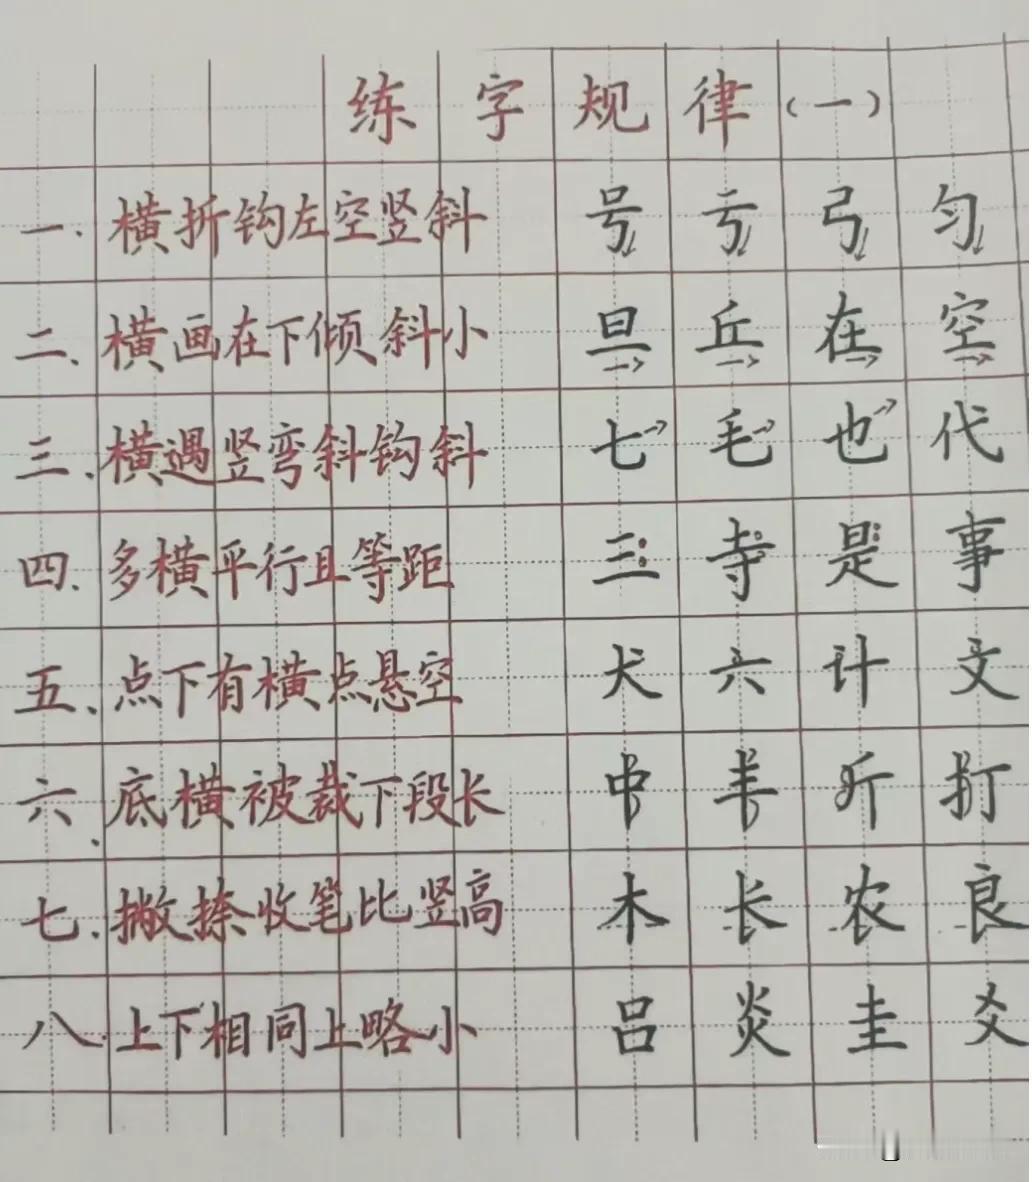 练字规律(一)
一.横折钩左空竖斜 号亏弓匀
二、横画在下倾斜小 旦丘在空
三.横遇竖弯斜钩斜 七毛也代
四.多横平行且等距 三寺是事
五、点下有横点悬空 犬六计文
六.底横被裁下段长 中丰斤打
七.撇捺收笔比竖高 木长农良
八.上下相同上略小 吕炎圭爻